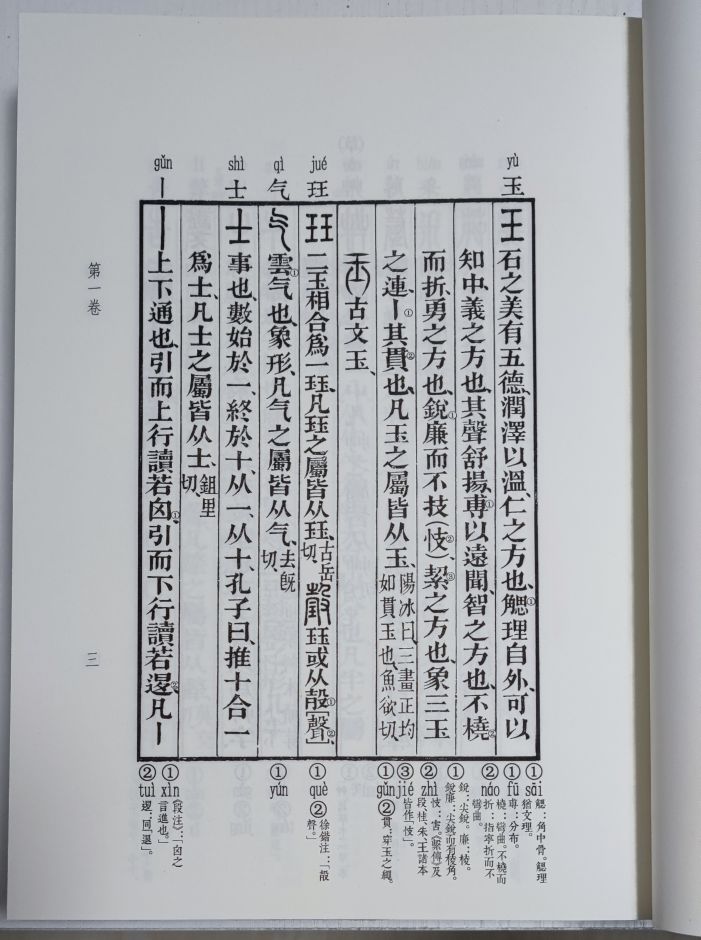 yù
玉
jué
玨
qì
气
shì
士
gǔn
丨
王石之美有五德、潤澤以溫、仁之方也、䚡①理自外、可以
知中、義之方也、其聲舒揚、尃①以遠聞、智之方也、不橈②
而折、勇之方也、銳①廉而不技(忮②)、絜③之方也、象三玉
之連、丨①其貫②也、凡玉之屬皆从玉、陽冰曰、三畫正均如貫玉也、魚欲切、
古文玉、
玨二玉相合爲一玨、凡玨之屬皆从玨、古岳切、瑴玨或从㱿①[聲②]、
气雲①气也、象形、凡气之屬皆从气、去旣切、
士事也、數始於一、終於十、从一、从十、孔子曰、推十合一
爲士、凡士之屬皆从士、鉏里切、
丨上下通也、引而上行讀若囟①、引而下行讀若𨓤②、凡丨
①sāi 䚡:角中骨。䚡理猶文理。
①fū 尃:分布。
②náo 橈:彎曲。不橈而折:指寧折而不彎曲。
①銳:尖銳。廉:棱。銳廉:尖銳而有棱角。
②zhì 忮:害。《繫傳》及段、桂、朱、王諸本皆作「忮」。
③jié
①gǔn
②貫:穿玉之繩。
①què
②徐鍇注:「㱿聲。」
①yún
①xìn 《段注》:「囟之言進也。」
②tuì 𨓤:同「退」。
第一卷
三